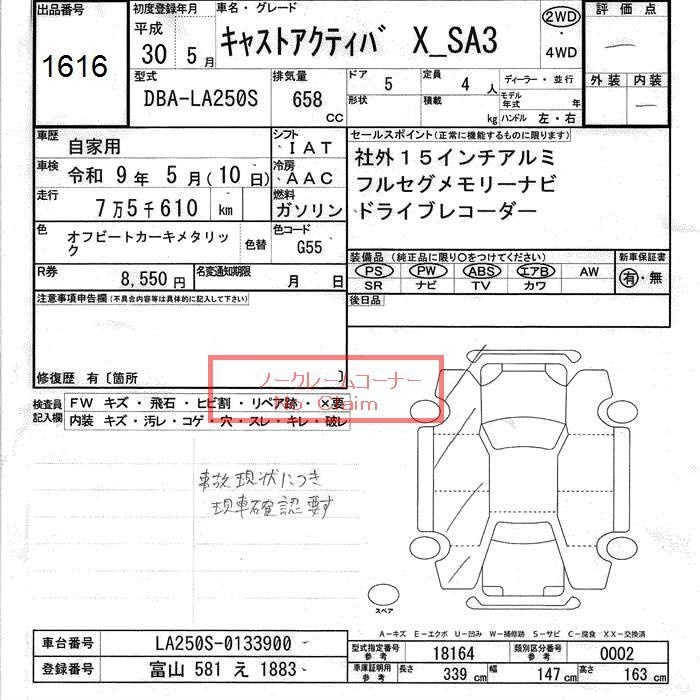 出品番号
1616
初度登録年月
平成
30 5月
車名・グレード
キャストアクティバ X_SA3
2WD
・
4WD
評価点
外装 内装
型式
DBA-LA250S
排気量
658 CC
ドア 5
定員 4 人
形状
積載 kg
ディーラー・並行
モデル年式 年
ハンドル 左・右
車歴 自家用
シフト IAT
車検 令和 9年 5月(10日)
冷房 AAC
走行 7万5千610 km
燃料 ガソリン
色 オフビートカーキメタリック
色替
色コード G55
R券 8,550円
名変通知期限 月 日
セールスポイント(正常に機能するものに限ります)
社外15インチアルミ
フルセグメモリーナビ
ドライブレコーダー
装備品(純正品に限り〇をつけてください)
PS PW ABS エアB AW
SR ナビ TV カワ
新車保証書
有・無
後日品
注意事項申告欄(不具合内容等は具体的に記入して下さい)
修復歴 有〔箇所 〕
ノークレームコーナー
No Claim
検査員記入欄
FW キズ・飛石・ヒビ割・リペア跡・×要
内装 キズ・汚レ・コゲ・穴・スレ・キレ・破レ
事故現状につき
現車確認要す
スペア
A-キズ E-エクボ U-凹み W-補修跡 S-サビ C-腐食 XX-交換済
車台番号 LA250S-0133900
登録番号 富山 581 え 1883
型式指定番号参考 18164
類別区分番号参考 0002
車庫証明用参考 長さ 339 cm 幅 147 cm 高さ 163 cm